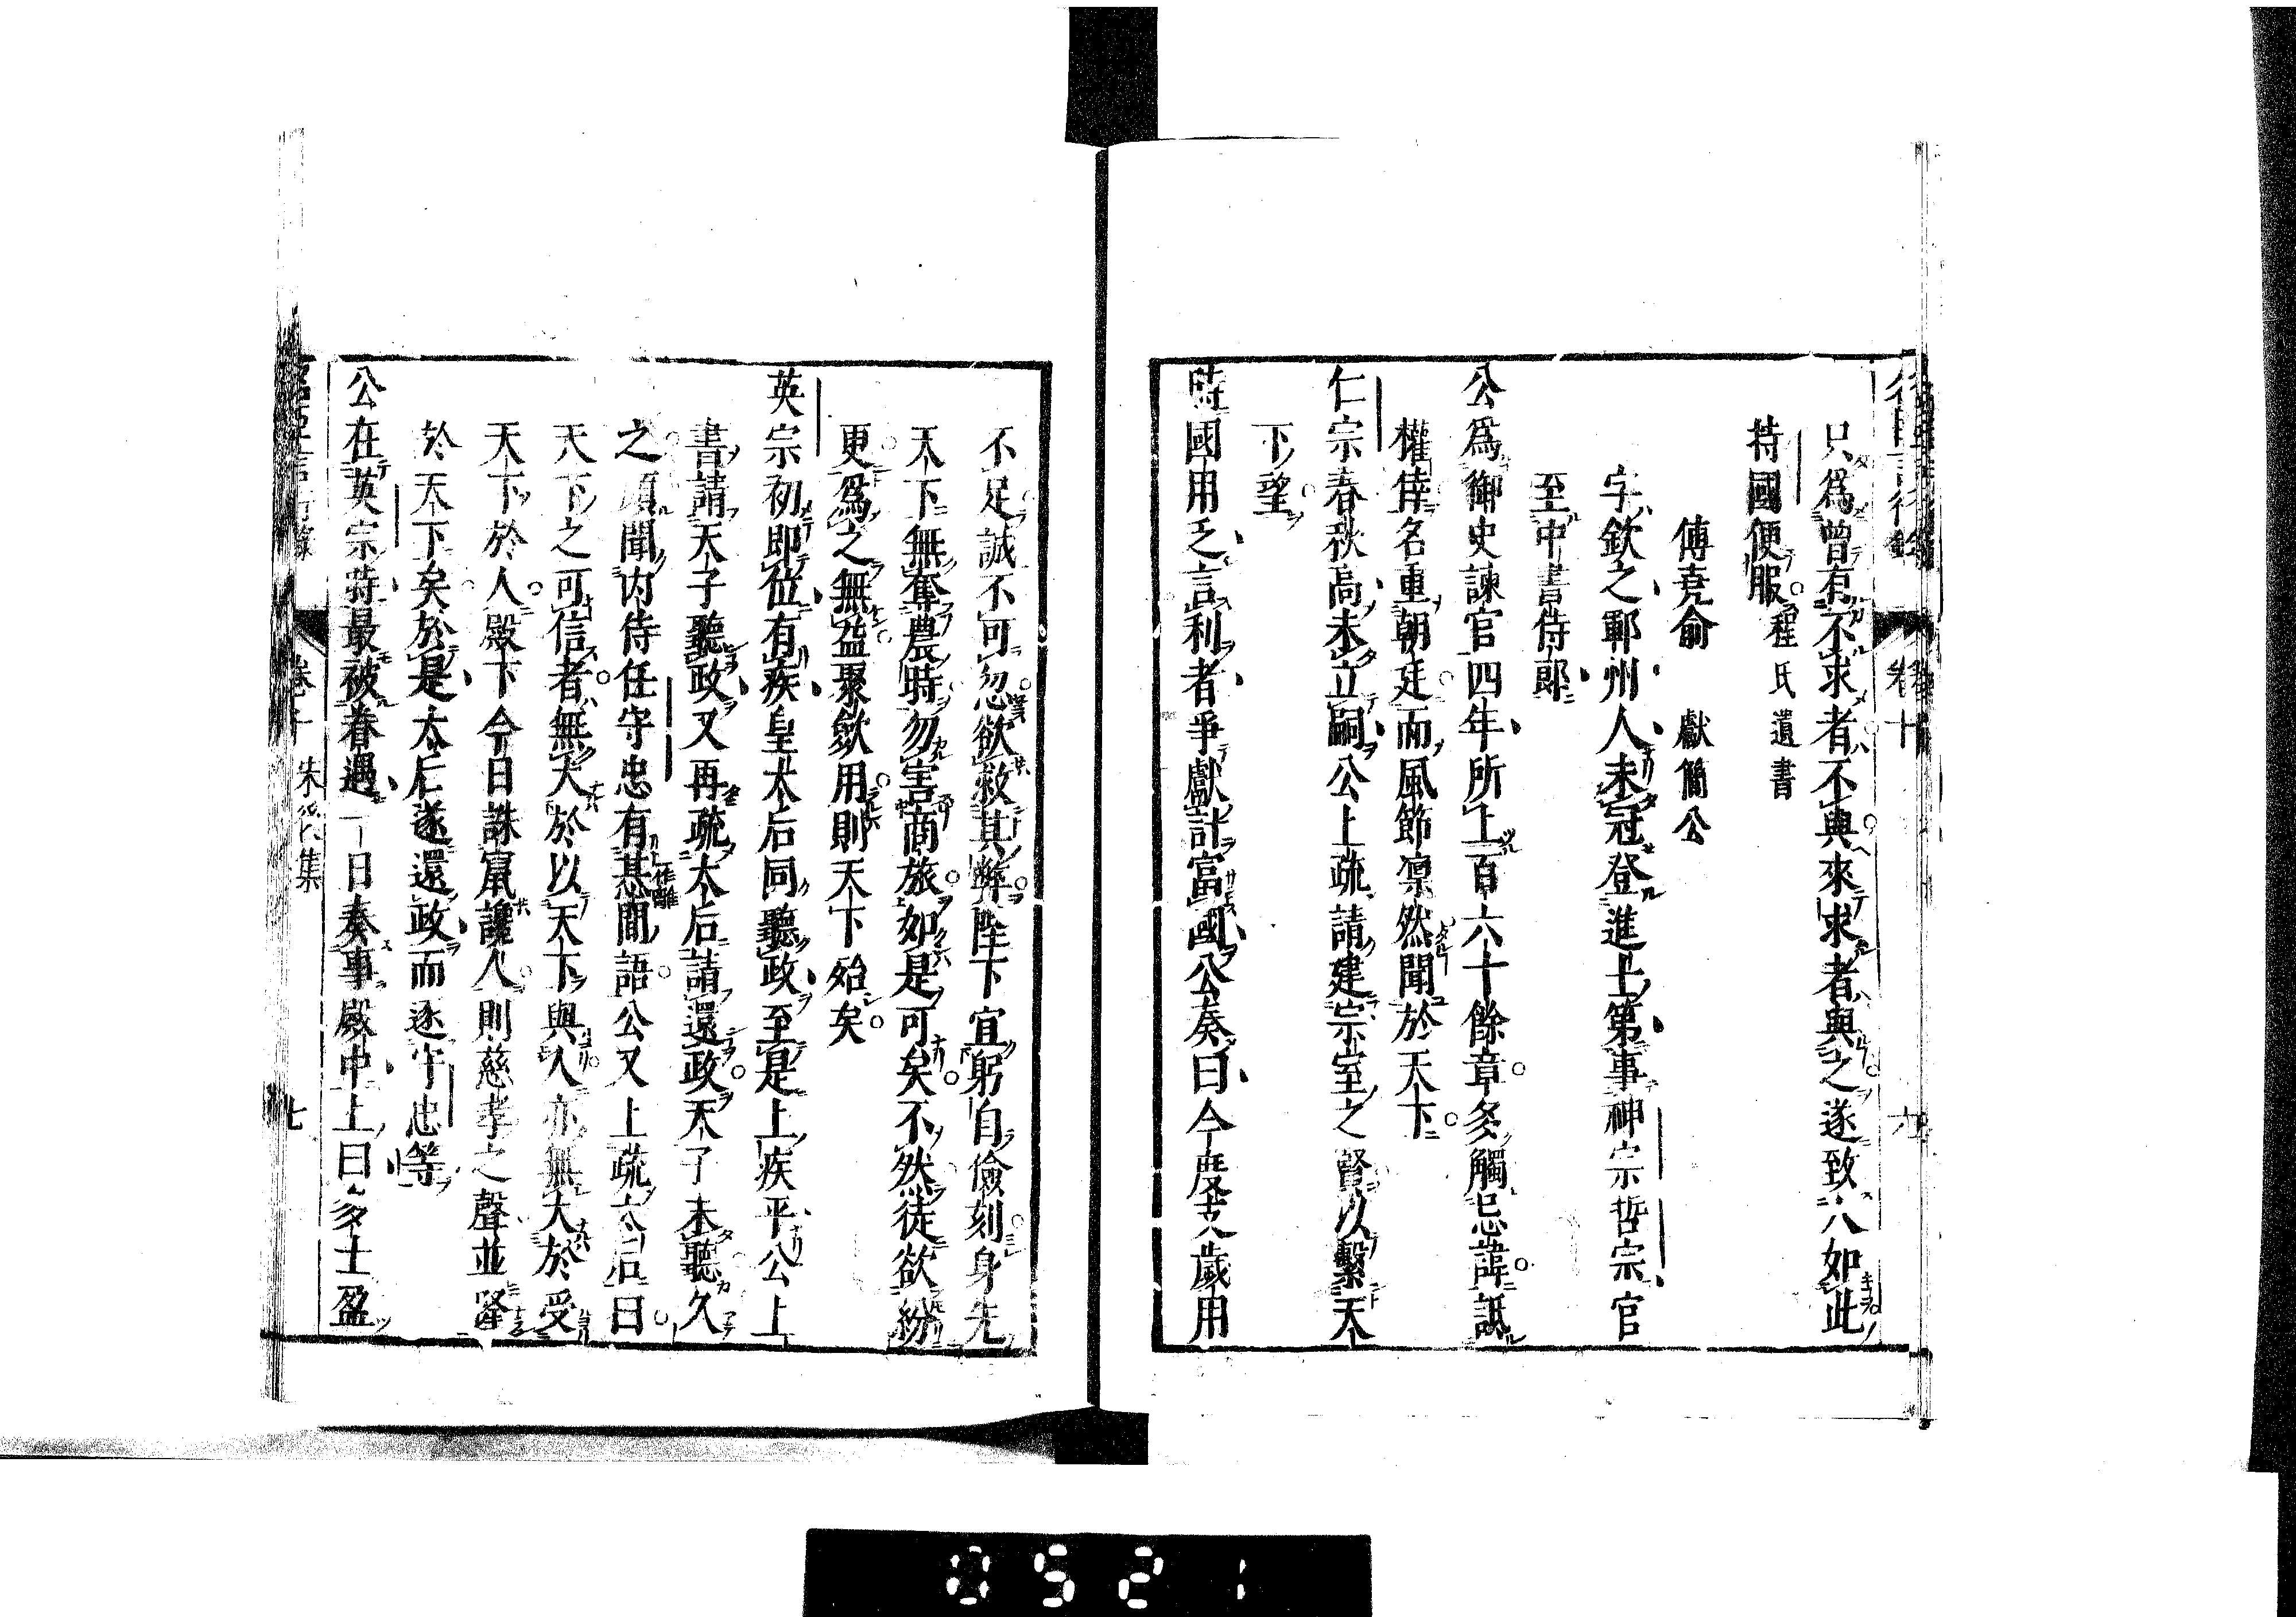 只爲曾有不求者不與來求者與之遂致人如此
持國便服程氏遺書
傅堯俞　獻簡公
字欽之鄆州人未冠登進士第事神宗哲宗官
至中書侍郎
公爲御史諫官四年所上百六十餘章多觸忌諱詆
權倖名重朝廷而風節凛然聞於天下
仁宗春秋高未立嗣公上疏請建宗室之賢以繫天
下望
時國用乏言利者爭獻計富國公奏曰今度支歲用
不足誠不可忽欲救其弊陛下宜躬自儉刻身先
天下無奪農時勿害商旅如是可矣不然徒欲紛
更爲之無益聚歛用則天下殆矣
英宗初即位有疾皇太后同聽政至是上疾平公上
書請天子聽政又再疏太后請還政天子未聽久
之頗聞内侍任守忠有甚間語公又上疏太后曰
作離
天下之可信者無大於以天下與人亦無大於受
天下於人殿下今日誅竄讒人則慈孝之聲並隆
於天下矣於是太后遂還政而逐守忠等
公在英宗時最被眷遇一日奏事殿中上曰多士盈
卷十
六
卷十
朱後集
七
0521